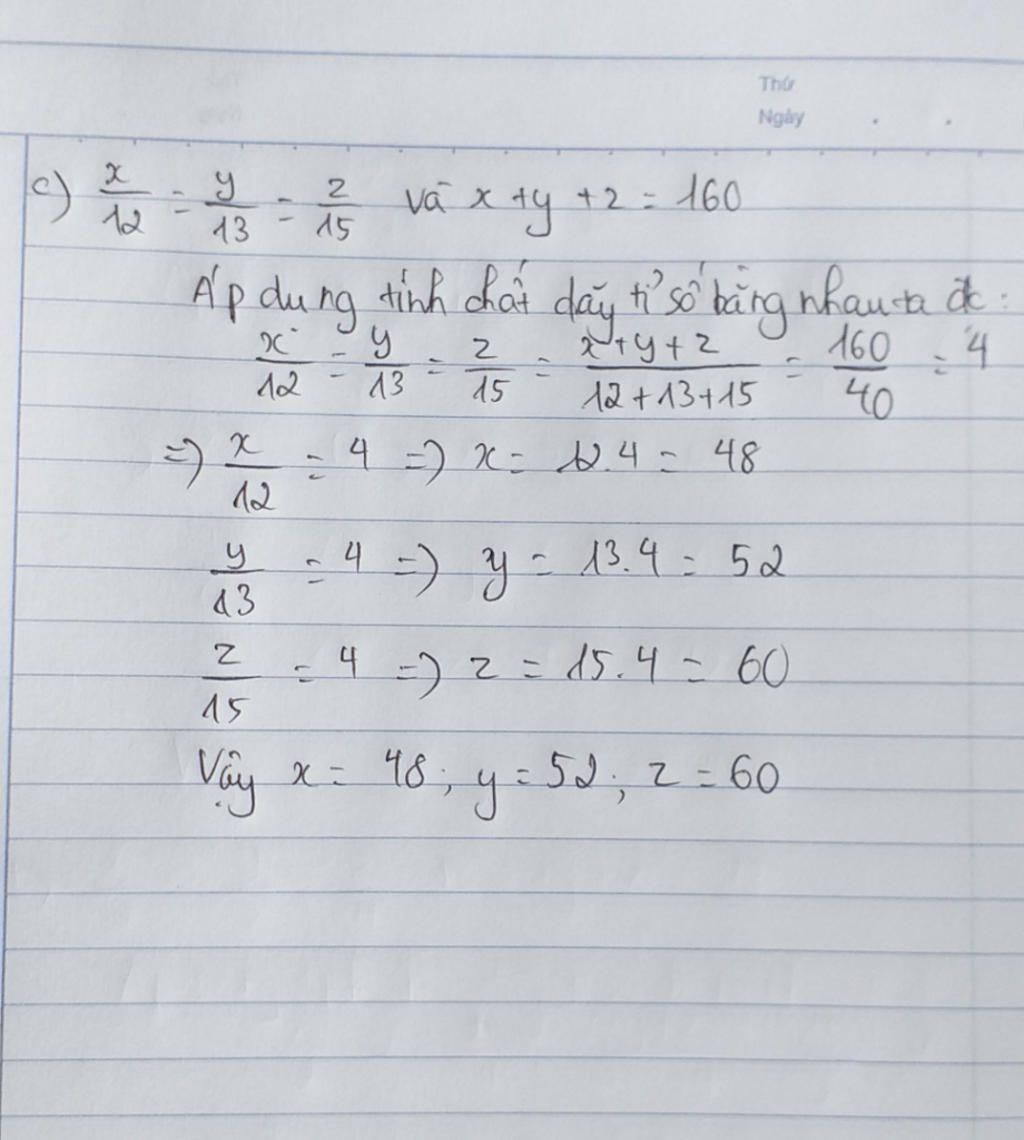 Thứ
Ngày . .
c) x/12 = y/13 = z/15 và x+y+z = 160
Áp dụng tính chất dãy tỉ số bằng nhau ta đc:
x/12 = y/13 = z/15 = (x+y+z)/(12+13+15) = 160/40 = 4
=> x/12 = 4 => x = 12.4 = 48
y/13 = 4 => y = 13.4 = 52
z/15 = 4 => z = 15.4 = 60
Vậy x = 48; y = 52; z = 60